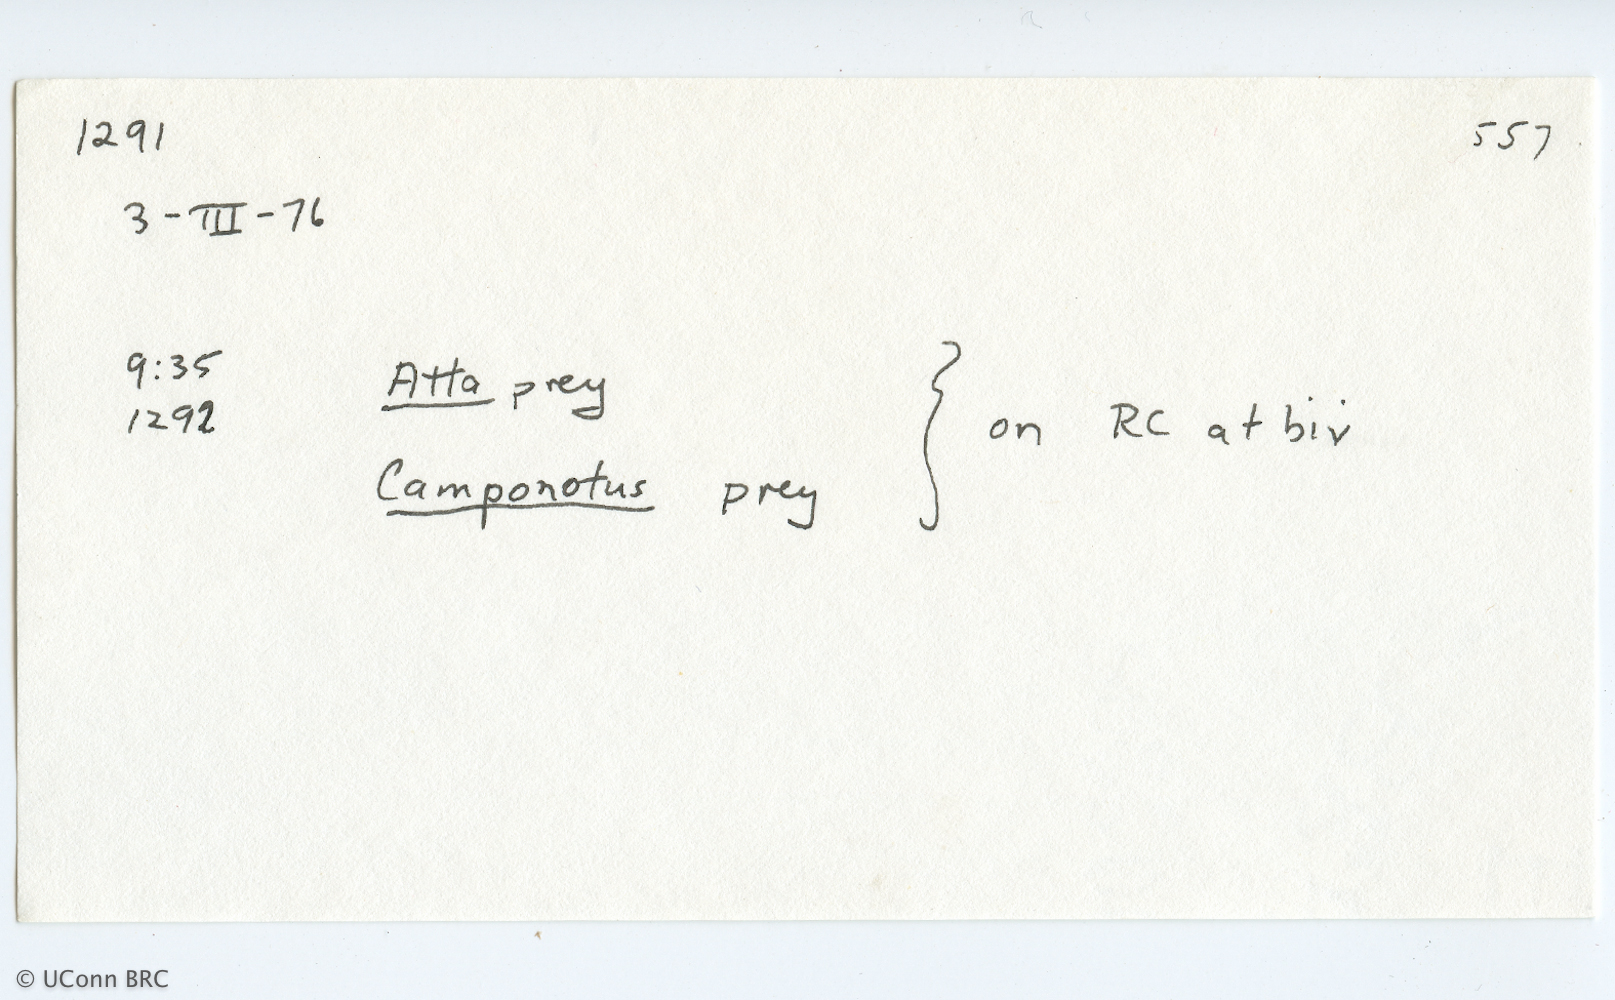 1291 557
3-III-76
9:35 Atta prey
1292 } on RC at biv
Camponotus prey
© UConn BRC